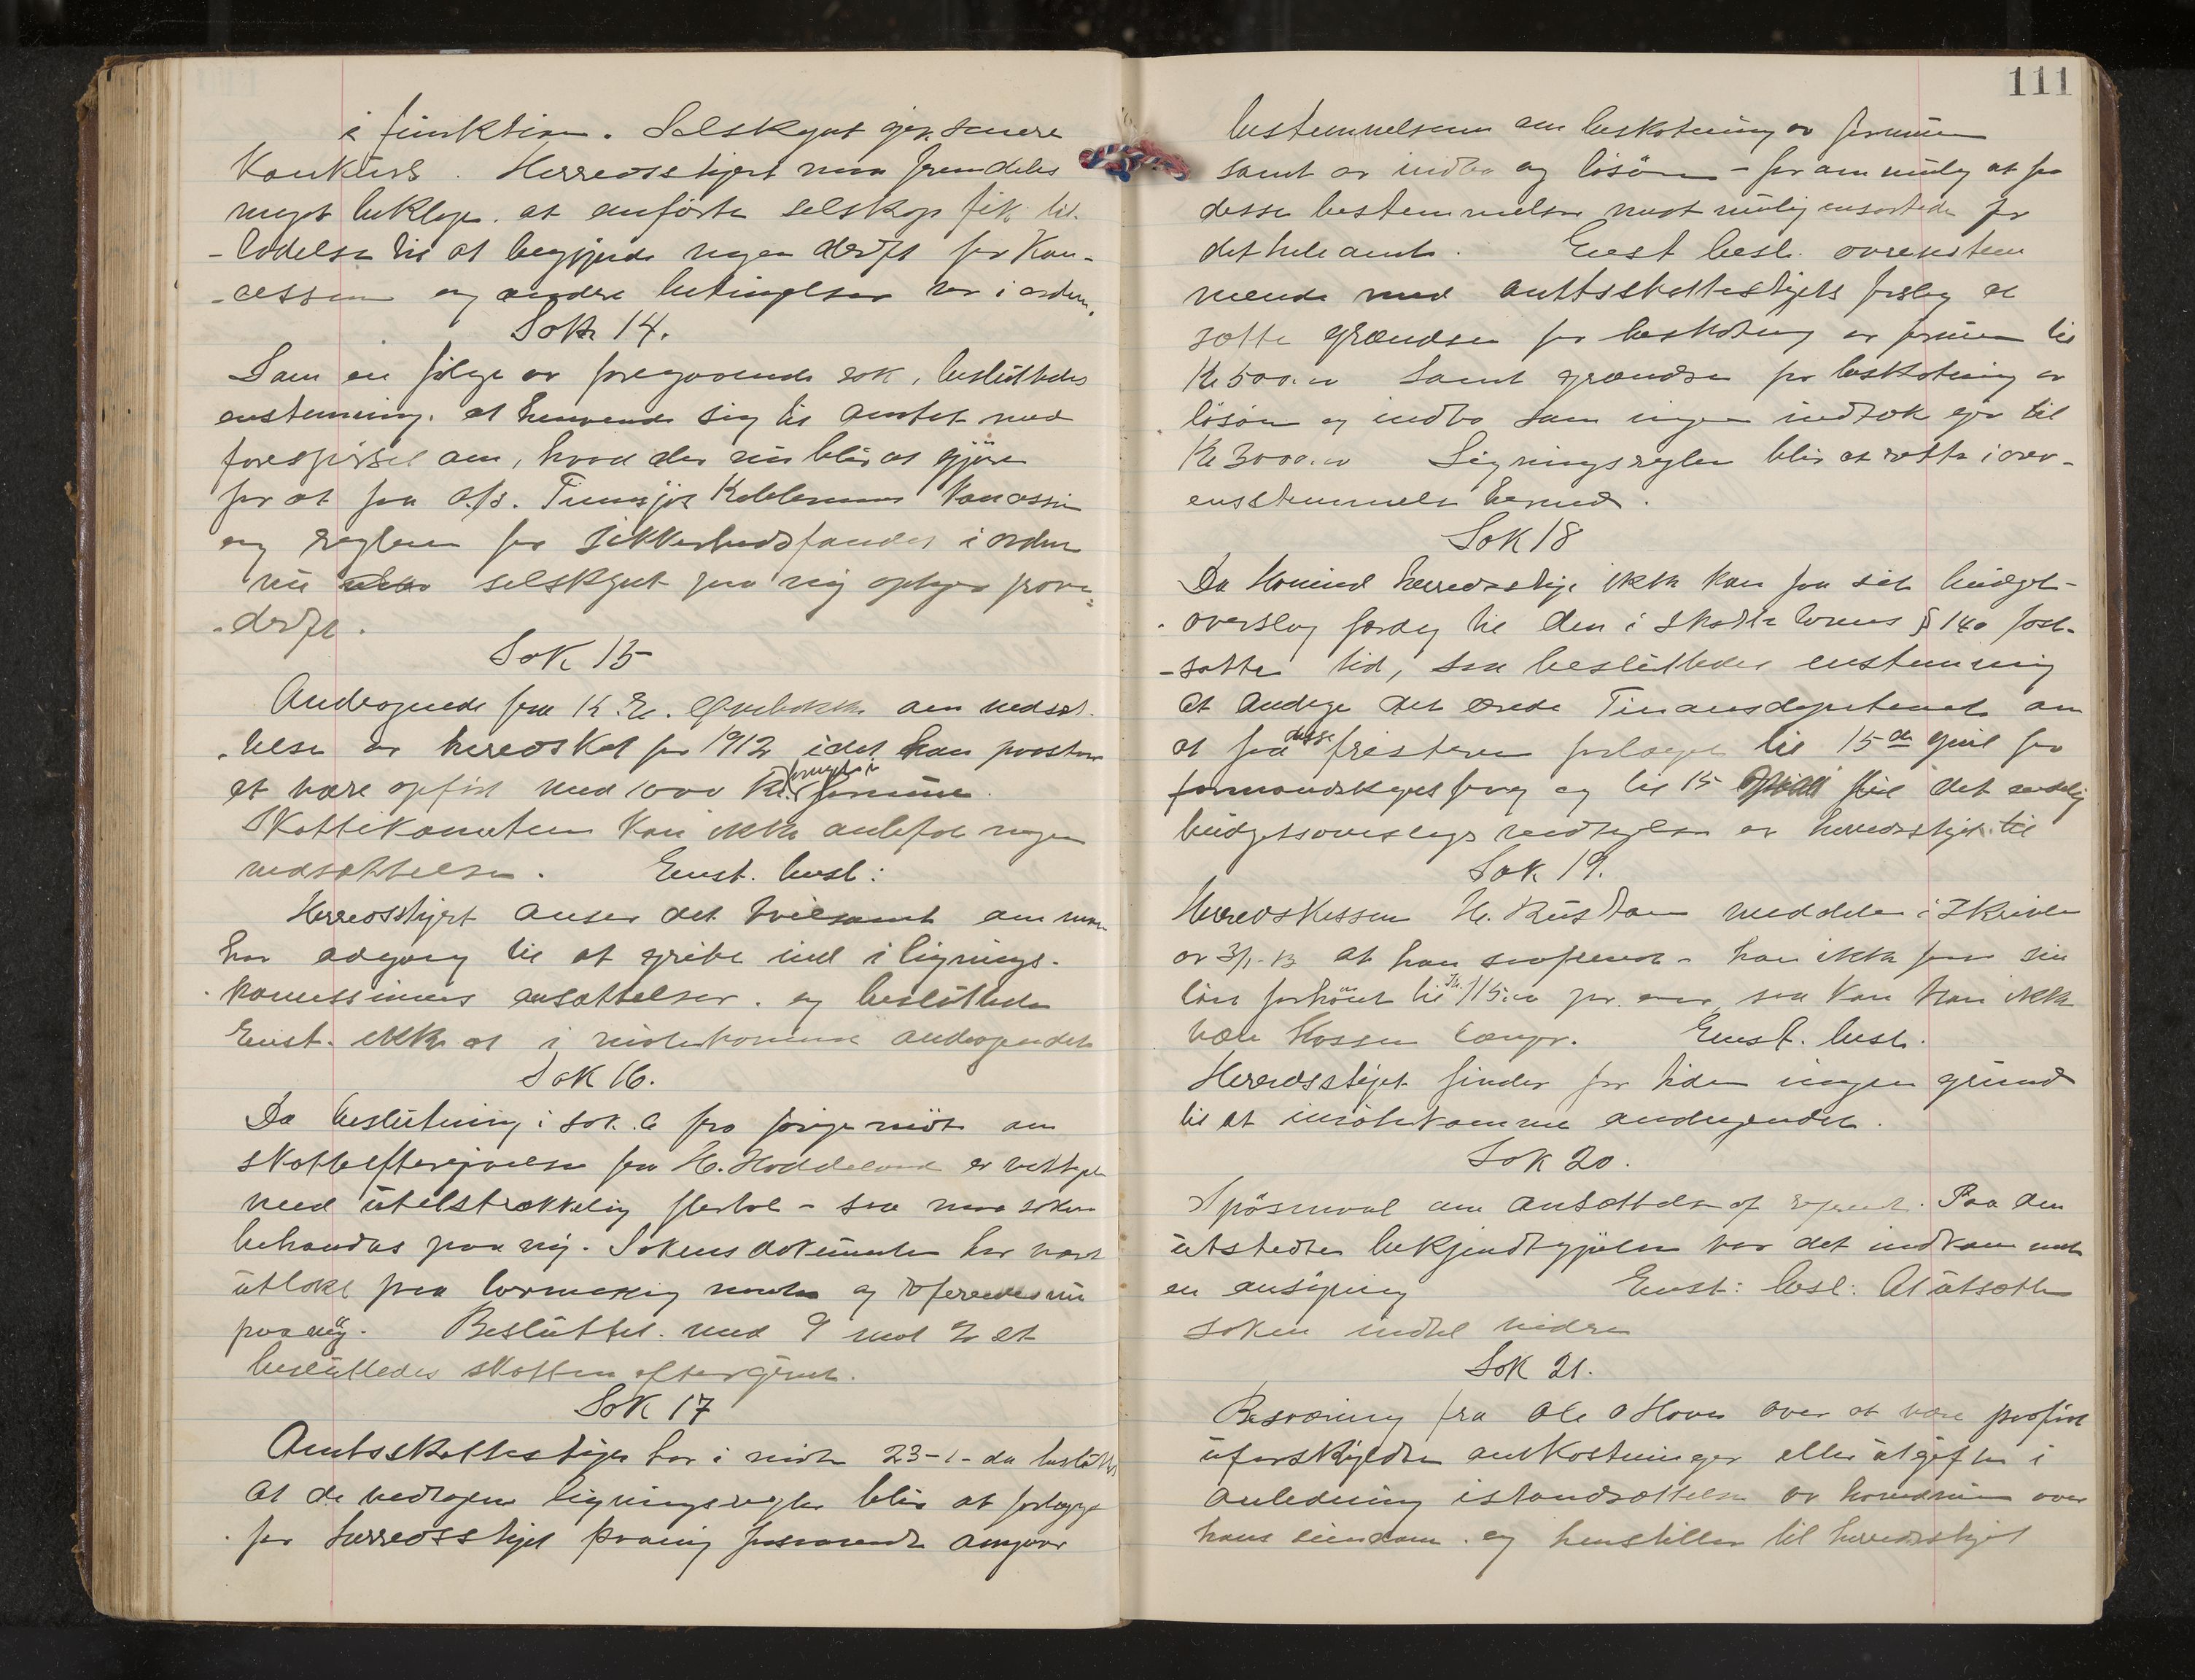 i funktion. Selskapet gjør senere
konkurs. Herredsstyret maa fremdeles
meget beklage at anførte selskap fik til-
-ladelse til at begynde nogen drift før kon-
-cessen og andre betingelser var i orden.
Sak 14.
Som en følge av foregaaende sak, besluttedes
enstemmig at henvende sig til amtet med
forespørsel om, hvad der nu blir at gjøre
for at faa A/S. Tinnsjø Kobbermines koncession
og reglene for sikkerhedsfondet i orden
nu selskapet paa ny optager prøve-
-drift.
Sak 15
Andragende fra K. E. om nedsæt-
-telse av heredskat for 1912 idet han paastaar
at være opført med 1000 kr. formeget i formue.
Skattekomiteen kan ikke anbefale nogen
nedsættelse. Enst. besl:
Herredsstyret anser det tvilsomt om man
har adgang til at gribe ind i lignings-
-komissionens ansættelser og besluttedes
Enst. ikke at imøtekomme andragendet
Sak 16.
Da beslutning i sak 6 fra forrige møte om
skatteeftergivelse for H. Hoddeland er vedtagen
med utilstrækkelig flertal - saa maa saken
behandles paa ny. Sakens dokumenter har været
utlagt paa lovmessig maate og refereredes nu
paa ny. Besluttet med 9 mot 2 at
besluttedes skatten eftergivet.
Sak 17
Amtsskattestyret har i møte 23-1- da besluttet
at de vedtagne ligningsregler blir at forlægge
for herredsstyret paany forsaavidt angaar
111
bestemmelserne om beskatning av formue
samt av indbo og løsøre - for om mulig at faa
disse bestemmelser mest mulig ensartede for
det hele amt. Enst besl. overenstem
mende med amtsskattestyrets forslag at
sætte grændsen for beskatning av formue til
Kr 500.00 samt grændsen for beskatning av
løsøre og indbo som ingen indtæk gir til
Kr 3000.00 Ligningsreglene blir at rette i over-
ensstemmelse hermed.
Sak 18
Da Hovind herredsstyre ikke kan faa sit budget-
overslag færdig til den i skattelovens § 140 fast-
-satte tid, saa besluttedes enstemmig
at andrage det ærede Finansdepartement om
at faa disse fristerne forlænget til 15de april for
formandskapets forslag og til 15 for det endelig
budgetsoverslags vedtagelse av herredsstyret til
Sak 19.
Herredskassen H. Rustan meddeler i skrivelse
av 3/1-13 at han saafremt - han ikke faar sin
løn forhøiet til Kr. 115.00 pr. saa kan han ikke
være kasser længer. Enst. besl.
Herredsstyret finder for tiden ingen grund
til at imøtekomme andragendet.
Sak 20.
Spørsmaal om ansættelse af Paa den
utstedte bekjendtgjørelse var det indkommet
en ansøgning Enst: besl: At utsætte
saken indtil videre
Sak 21.
Besværing fra Ole O Hovin over at være paaført
uforskyldte omkostninger eller utgifter i
anledning istandsættelse av over
hans eiendom og henstiller til herredsstyret